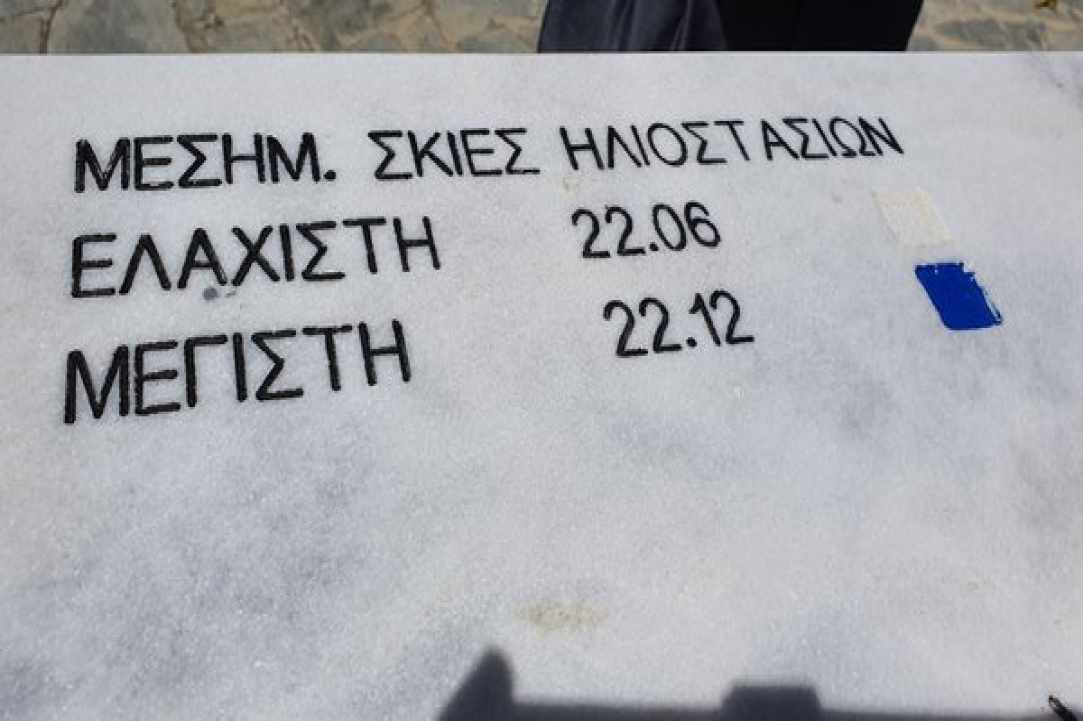 ΜΕΣΗΜ. ΣΚΙΕΣ ΗΛΙΟΣΤΑΣΙΩΝ
ΕΛΑΧΙΣΤΗ 22.06
ΜΕΓΙΣΤΗ 22.12